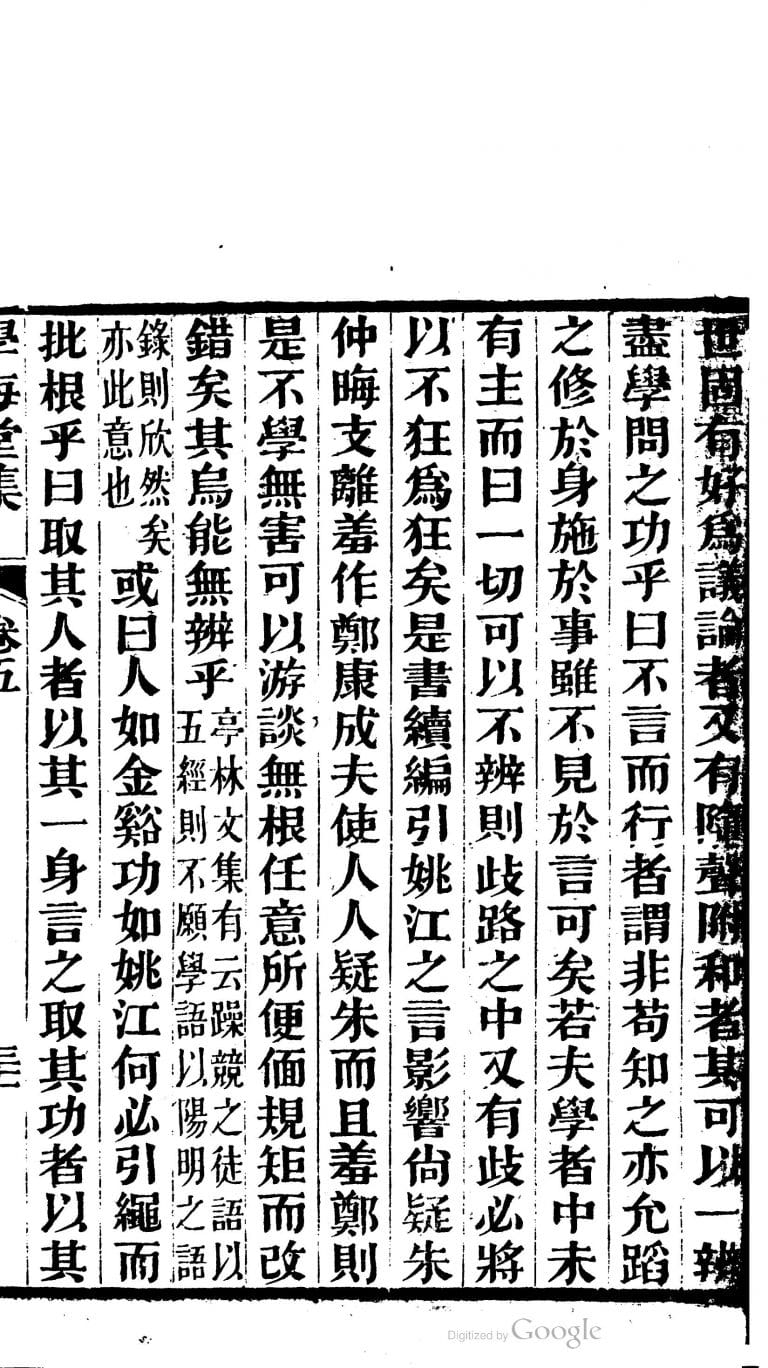 世固有好爲議論者又有隨聲附和者其可以一辨
盡學問之功乎曰不言而行者謂非苟知之亦允蹈
之修於身施於事雖不見於言可矣若夫學者中未
有主而曰一切可以不辨則歧路之中又有歧必將
以不狂爲狂矣是書續編引姚江之言影響尙疑朱
仲晦支離羞作鄭康成夫使人人疑朱而且羞鄭則
是不學無害可以游談無根任意所便偭規矩而改
錯矣其烏能無辨乎亭林文集有云躁競之徒語以
五經則不願學語以陽明之語
錄則欣然矣
亦此意也
或曰人如金谿功如姚江何必引繩而
批根乎曰取其人者以其一身言之取其功者以其
學海堂集
卷五
Digitized by Google